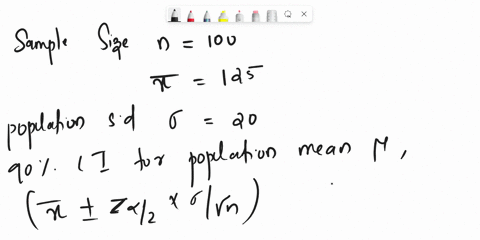 Sample Size n = 100
x̄ = 125
population s.d σ = 20
90% CI for population mean μ,
(x̄ ± Zα/2 × σ/√n)